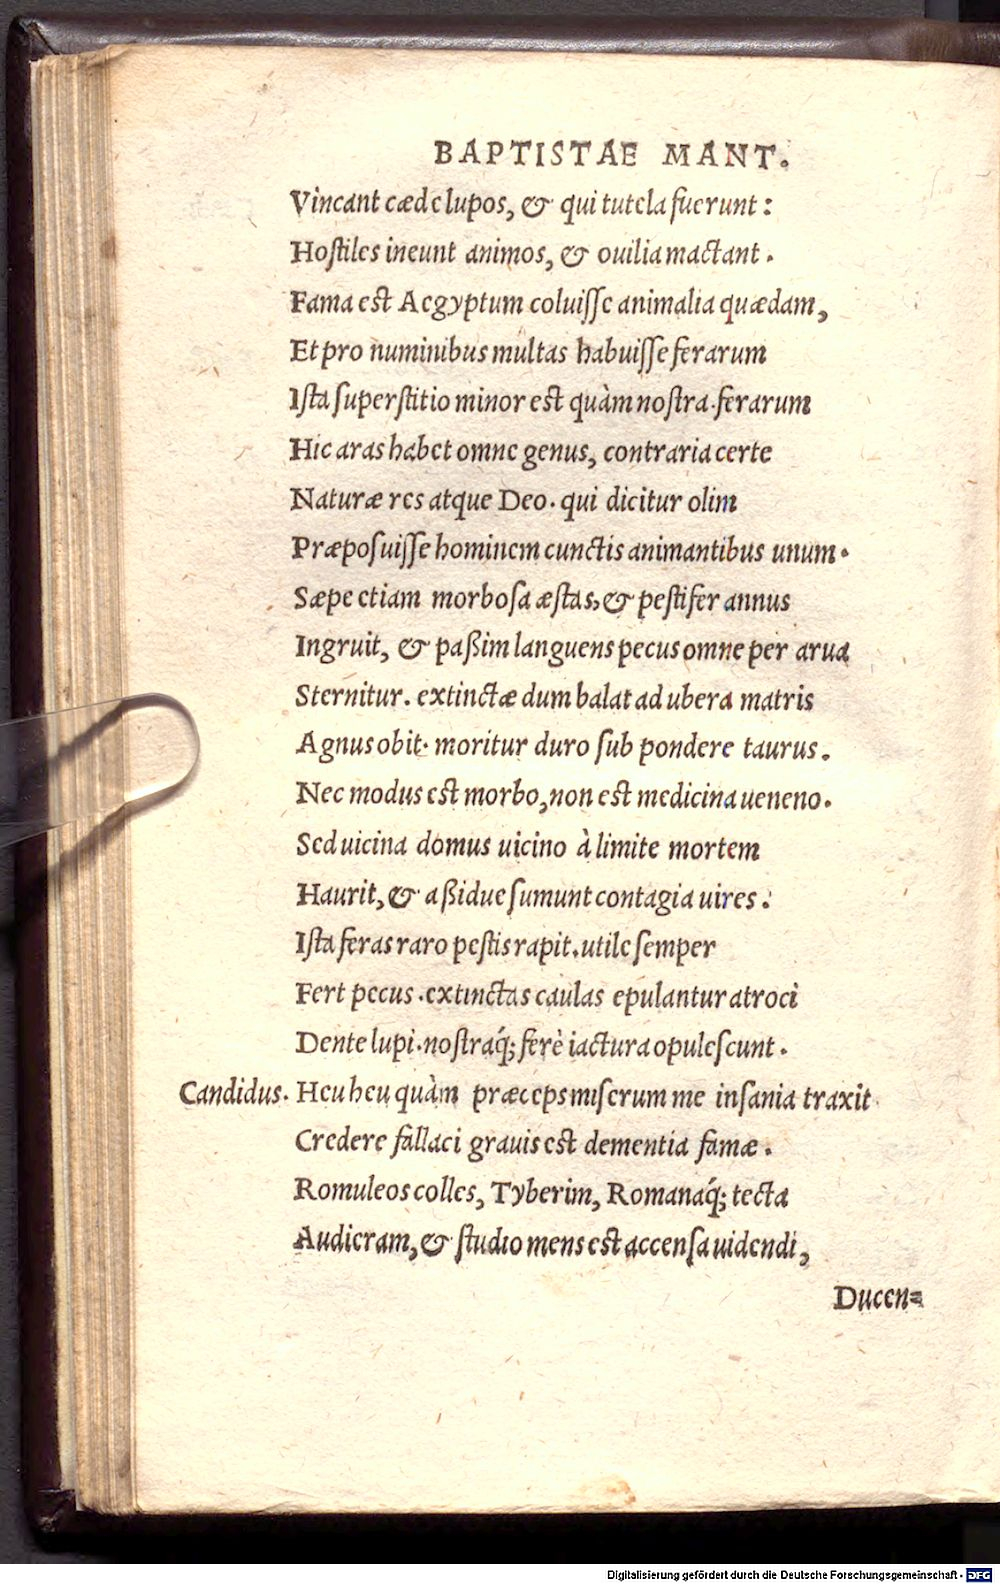 BAPTISTAE MANT.
Vincant cæde lupos, & qui tutela fuerunt:
Hoſtiles ineunt animos, & ouilia mactant.
Fama eſt Aegyptum coluiſſe animalia quædam,
Et pro numinibus multas habuiſſe ferarum
Iſta ſuperſtitio minor eſt quàm noſtra. ferarum
Hic aras habet omne genus, contraria certe
Naturæ res atque Deo. qui dicitur olim
Præpoſuiſſe hominem cunctis animantibus unum.
Sæpe etiam morboſa æſtas, & peſtifer annus
Ingruit, & paßim languens pecus omne per arua
Sternitur. extinctæ dum balat ad ubera matris
Agnus obit. moritur duro ſub pondere taurus.
Nec modus eſt morbo, non eſt medicina ueneno.
Sed uicina domus uicino à limite mortem
Haurit, & aßidue ſumunt contagia uires:
Iſta feras raro peſtis rapit. utile ſemper
Fert pecus. extinctas caulas epulantur atroci
Dente lupi. noſtraq́; ferè iactura opuleſcunt.
Candidus. Heu heu quàm præceps miſerum me inſania traxit
Credere fallaci grauis eſt dementia famæ.
Romuleos colles, Tyberim, Romanaq́; tecta
Audieram, & ſtudio mens eſt accenſa uidendi,
Ducen=
Digitalisierung gefördert durch die Deutsche Forschungsgemeinschaft - DFG